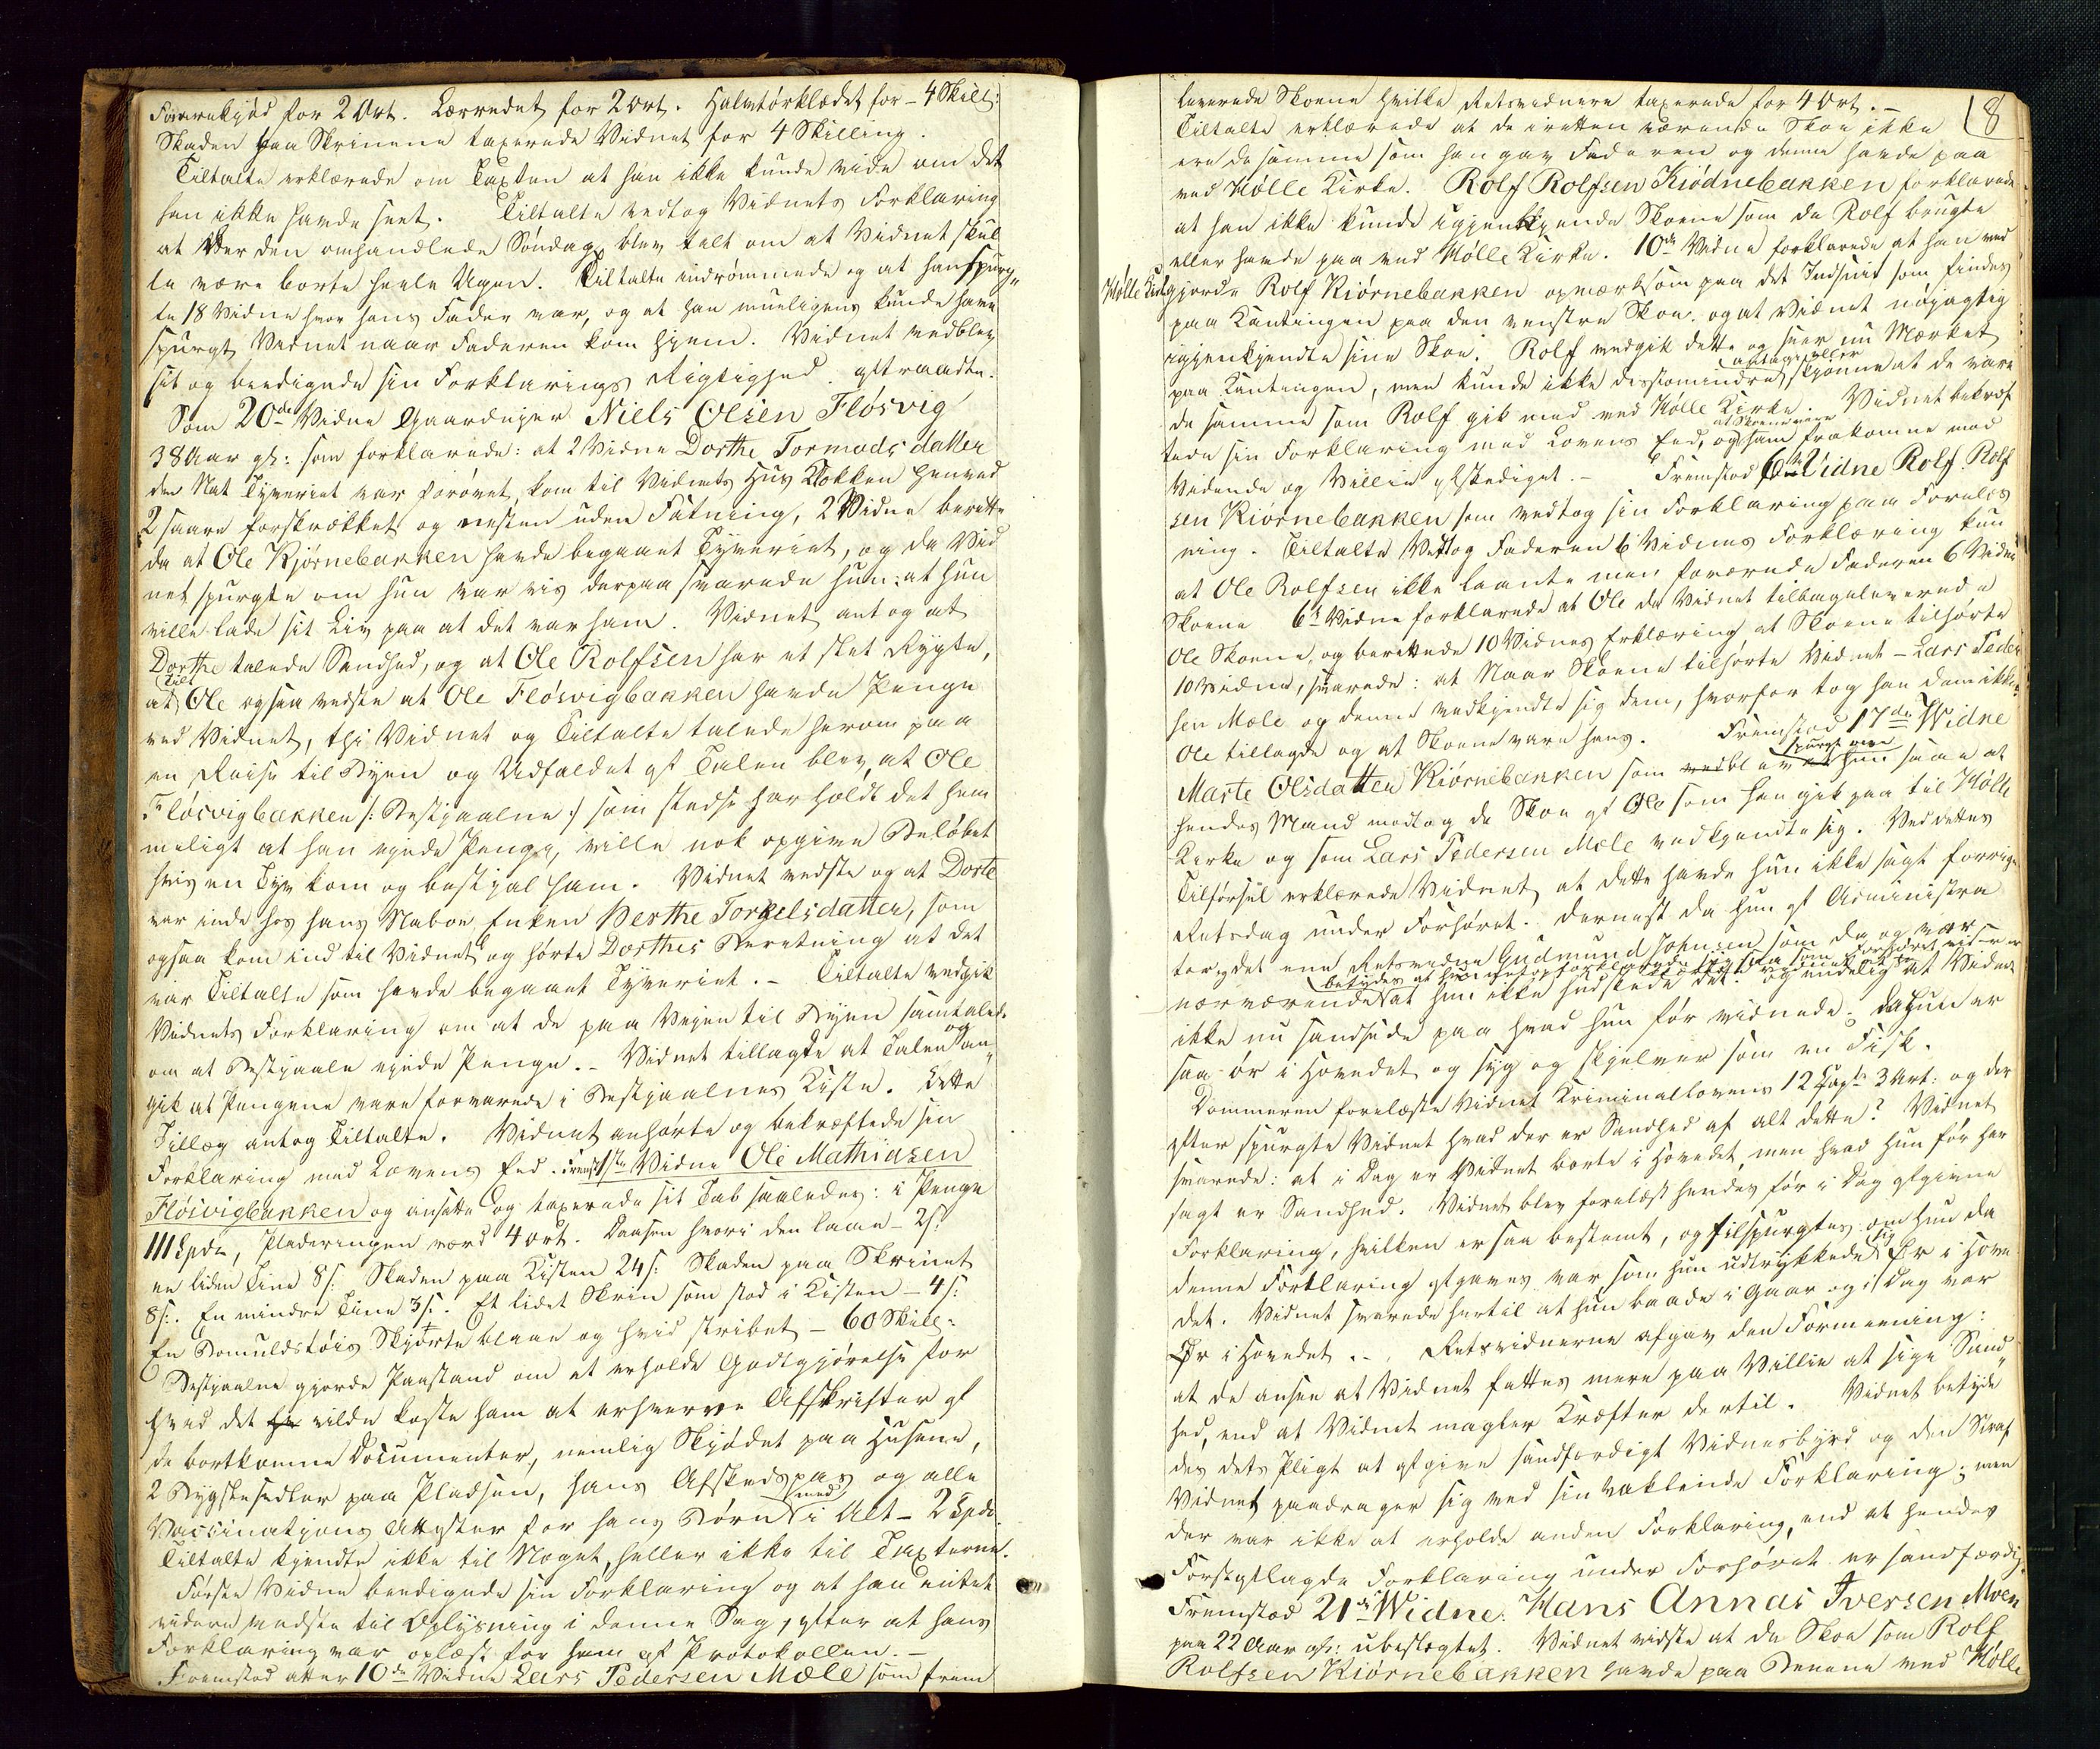 Faarekjød for 2 Ort. Lærredet for 2 Ort. Halstørklædet for – 4 Skill:
Skaden paa Skrinene taxerede Vidnet for 4 Skilling.
Tiltalte erklærede om Taxten at han ikke kunde vide om det
han ikke havde seet. Tiltalte vedtog Vidnets Forklaring
at der den omhandlede Søndag blev talt om at Vidnet skul
le være borte heele Ugen. Tiltalte indrømmede og at han spurg„
te 18 Vidne hvor hans Fader var, og at han mueligens kunde have
spurgt Vidnet naar Faderen kom hjem. Vidnet vedblev
sit og beedigede sin Forklarings Rigtighed. aftraadte.
Som 20de Vidne Gaardejer Niels Olsen Flösvig
38 Aar gl: som forklarede: at 2 Vidne Dorthe Tormods datter
den Nat Tyveriet var forøvet, kom til Vidnets Huus Klokken henved
2 saare forskrækket og næsten uden Fatning, 2 Vidne berette
de at Ole Kjørnebakken havde begaaet Tyveriet, og da Vid
net spurgte om hun var vis derpaa svarede hun: at hun
ville lade sit Liv paa at det var ham. Vidnet antog at
Dorthe talede Sandhed, og at Ole Rolfsen har et slet Rygte,
Tilt
at Ole ogsaa vedste at Ole Flösvigbakken havde Penge
ved Vidnet, thi Vidnet og Tiltalte talede herom paa
en Reise til Byen og Udfaldet af Talen blev, at Ole
Flösvigbakken /: Bestjaalne :/ som stedse har holdt det hem
meligt at han ejede Penge, ville nok opgive Beløbet
hvis en Tyv kom og bestjal ham. Vidnet vedste og at Dorte
var inde hos hans Naboe Enken Berthe Torkelsdatter, som
ogsaa kom ind til Vidnet og hørte Dorthes Beretning at det
var Tiltalte som havde begaaet Tyveriet. – Tiltalte vedgik
Vidnets Forklaring om at de paa Vejen til Byen samtalede
om at Bestjaalne ejede Penge. – Vidnet tillagde at Talen og an„
gik at Pengene vare forvarede i Bestjaalnes Kiste. Dette
Tillæg antog Tiltalte. Vidnet anhørte og bekræftede sin
Forklaring med Lovens Eed. Fremst 1ste Vidne Ole Mathiasen
Flösvigbakken og ansatte og taxerede sit Tab saaledes: i Penge
111 Spd, Pladeringen værd 4 Ort. Daasen hvori den laae – 2 s:
en liden Tine 8 s: Skaden paa Kisten 24 s: Skaden paa Skrinet
8 s:. En mindre Tine 3 s:. Et lidet Skrin som stod i Kisten – 4 s:
En Bomuldstøis Skjorte blaae og hvid stribet – 60 Skill:
Bestjaalne gjorde Paastand om at erholde Godtgjørelse for
hvad det vilde koste ham at erhverve Afskrifter af
de bortkomne Documenter, nemlig Skjødet paa Husene,
2 Bygselsedler paa Pladsen, hans Afskedspas og alle
Vaccinations Attester for hans Børn med i Alt – 2 Spd.
Tiltalte kjendte ikke til Noget, heller ikke til Taxterne.
Første Vidne beedigede sin Forklaring og at han intet
videre vedste til Oplysning i denne Sag, efter at hans
Forklaring var oplæst for ham af Protokollen. –
Fremstod atter 10de Vidne Lars Pedersen Mæle som frem
18
leverede Skoene hvilke Retsvidnere taxerede for 4 Ort. –
Tiltalte erklærede at de i retten værende Skoe ikke
ere de samme som han gav Faderen og denne havde paa
ved Hölle Kirke. Rolf Rolfsen Kiödnebakken forklarede
at han ikke kunde igjenkjende Skoene som de Rolf brugte
eller havde paa ved Hölle Kirke. 10de Vidne forklarede at han ved
Hölle Kirke gjorde Rolf Kiörnebakken opmærksom paa det Indsnit som findes
paa Kantingen paa den venstre Skoe. og at Vidnet nöjagtig
igjenkjendte sine Skoe. Rolf vedgik dette og seer nu Mærket
antage eller
paa Kantingen, men kunde ikke destomindre skjønne at de vare
de samme som Rolf gik med ved Hölle Kirke. Vidnet bekræf
at Skoene vare
tede sin Forklaring med Lovens Eed, og ham frakomne mod
Vidende og Villie aflediget. – Fremstod 6te Vidne Rolf Rolf
sen Kiörnebakken som vedtog sin Forklaring paa Forelæs
ning. Tiltalte Vedtog Faderen 6 Vidnes Forklæring kun
at Ole Rolfsen ikke laante men forærede Faderen 6 Vidne
Skoene 6t Vidne forklarede at Ole da Vidnet tilbageleverede
Ole Skoene, og berettede 10 Vidnes Erklæring at Skoene tilhørte
10 Vidne, svarede: at Naar Skoene tilhørte Vidnet – Lars Peder
sen Mæle og denne vedkjendte sig dem, hvorfor tog han dem ikke.
Ole tillagde og at Skoene vare hans. Fremstod 17de Widne
spurgt om
Marte Olsdatter Kiörnebakken som vedblev at hun saae at
hendes Mand modtog de Skoe af Ole som han gik paa til Hölle
Kirke og som Lars Pedersen Mæle vedkjendte sig. Ved dettes
Tilførsel erklærede Vidnet at dette havde hun ikke sagt forrige
Retsdag under Forhøret. Dernæst da hun af Administra
tor, det ene Retsvidne Gudmund Johnsen som da og var
nærværende at hun ikke hustede det. og endelig at Vidnet
ikke nu sandsede paa hvad hun før vidnede. Da hun er
saa ør i Hovedet og syg og skjelver som en Fisk.
Dommeren forelæste Vidnet Kriminallovens 12 Cap 3 Art: og der
efter spurgte Vidnet hvad der er Sandhed af alt dette? Vidnet
svarede: at i Dag er Vidnet borte i Hovedet, men hvad hun før har
sagt er Sandhed. Vidnet blev forelæst hendes før i Dag afgivne
Forklaring, hvilken er saa bestemt, og tilspurgtes om hun da
denne Forklaring afgaves var som hun udtrykkede sig Ør i Hove
det. Vidnet svarede hertil at hun baade i Gaar og i Dag var
Ør i Hovedet. – Retsvidnerne afgav den Formeening:
at de ansee at Vidnet fattes mere paa Villie at sige Sand„
hed, end at Vidnet magter Kræfter dertil. Vidnet betyde
des dets Pligt at afgive sandfærdigt Vidnesbyrd og den Straf
Vidnet paadrager sig ved sin vaklende Forklaring; men
der var ikke at erholde anden Forklaring, end at hendes
Først aflagde Forklaring under Forhøret er sandfærdig.
Fremstod 21de Widne. Hans Annas Iversen Moen
paa 22 Aar gl: ubeslægtet. Vidnet vidste at de Skoe som Rolf
Rolfsen Kiörnebakken havde paa Benene ved Hölle